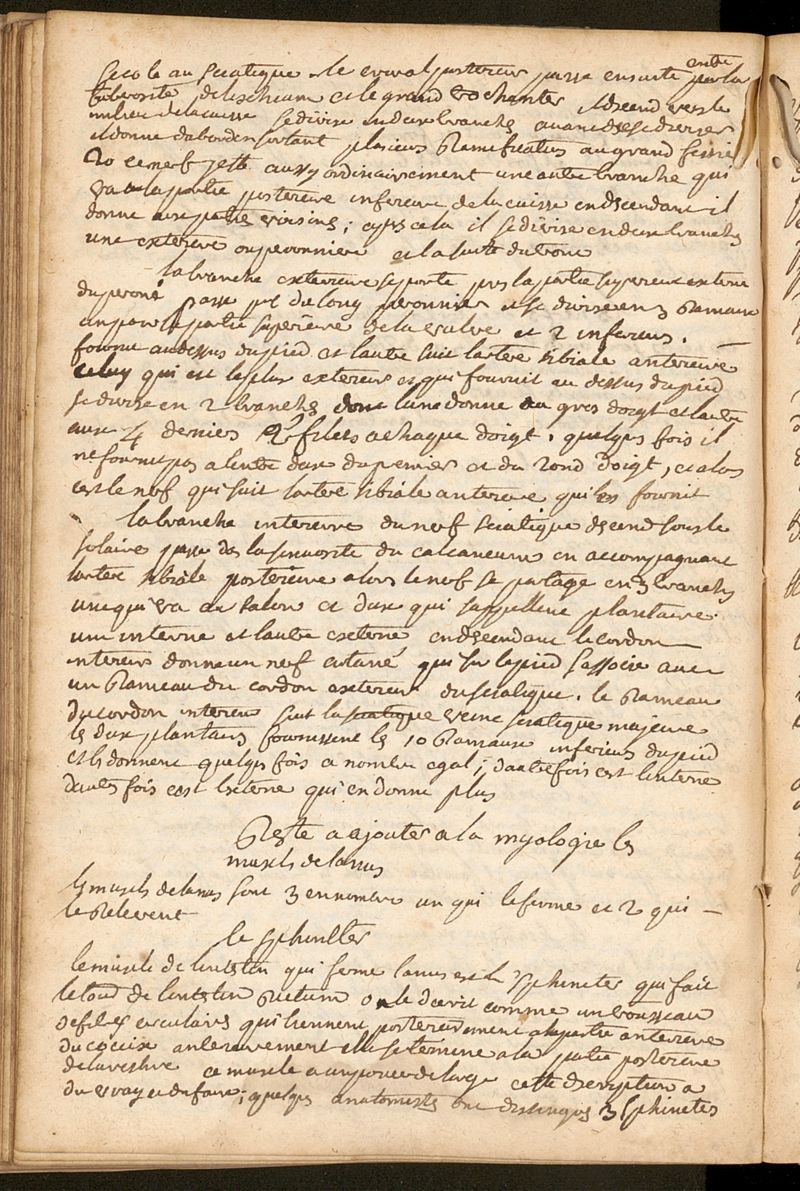 se colle au sciatique. le crural posterieur passe ensuite entre par la
tuberosité de lischium et le grand trochanter il descend vers le
milieu de la cuisse se divise en deux branches avant de se diviser
il donne dabord en sortant plusieurs Ramifications au grand fessie
2o ce nerf jette aussy ordinairement une autre branche qui
va a la partie posterieure inferieure de la cuisse en descendant il
donne aux parties voisines ; apres cela il se divise en deux branches
une exterieure ou peronniere et la suite du tronc
la branche exterieure se porte vers la partie superieure externe
du peroné passe sous du long peronnier et se divise en 3 Rameaux
un pour la partie superieure de la et 2 inferieurs.
fournit au dessus du pied et lautre suit lartere tibiale anterieure
celuy qui est le plus exterieur et qui fournit au dessus du pied
se divise en 2 branches dont lune donne au gros doigt et lautre
aux 4 derniers 2 filets a chaque doigt. quelques fois il
ne fournit pas a lentre deux du premier et du second doigt, et alors
cest le nerf qui suit lartere tibiale anterieure qui les fournit
la branche interieure du nerf sciatique descend sous le
solaire passe dans la sinuosité du calcaneum en accompagnant
lartere tibiale posterieure alors le nerf se partage en 3 branches
une qui va au talon et deux qui sappellent plantaires
un interne et lautre externe en descendant le cordon
interieur donne un nerf cutané qui sur le pied sassocie avec
un Rameau du cordon exterieur du sciatique. le Rameau
du cordon interieur suit la sciatique veine sciatique majeure
les deux plantaires fournissent les 10 Rameaux inferieurs du pied
et ils donnent quelques fois a nombre egal ; dautre fois cest linterne
dautres fois cest lexterne qui en donne plus
Reste a ajouter a la myologie les
muscles de lanus
les muscles de lanus sont 3 en nombre un qui le ferme et 2 qui
le Relevent
le sphincter
le muscle de lintestin qui ferme lanus est le sphincter qui fait
le tour de lintestin Rectum on le decrit comme un trousseau
de fibres circulaires qui tiennent posterieurement a la partie anterieure
du coccix anterieurement elle se termine a la partie posterieure
de lurethre ce muscle a un pouce de large cette description a
du vray et du faux ; quelques anatomistes ont distingué 3 sphincters